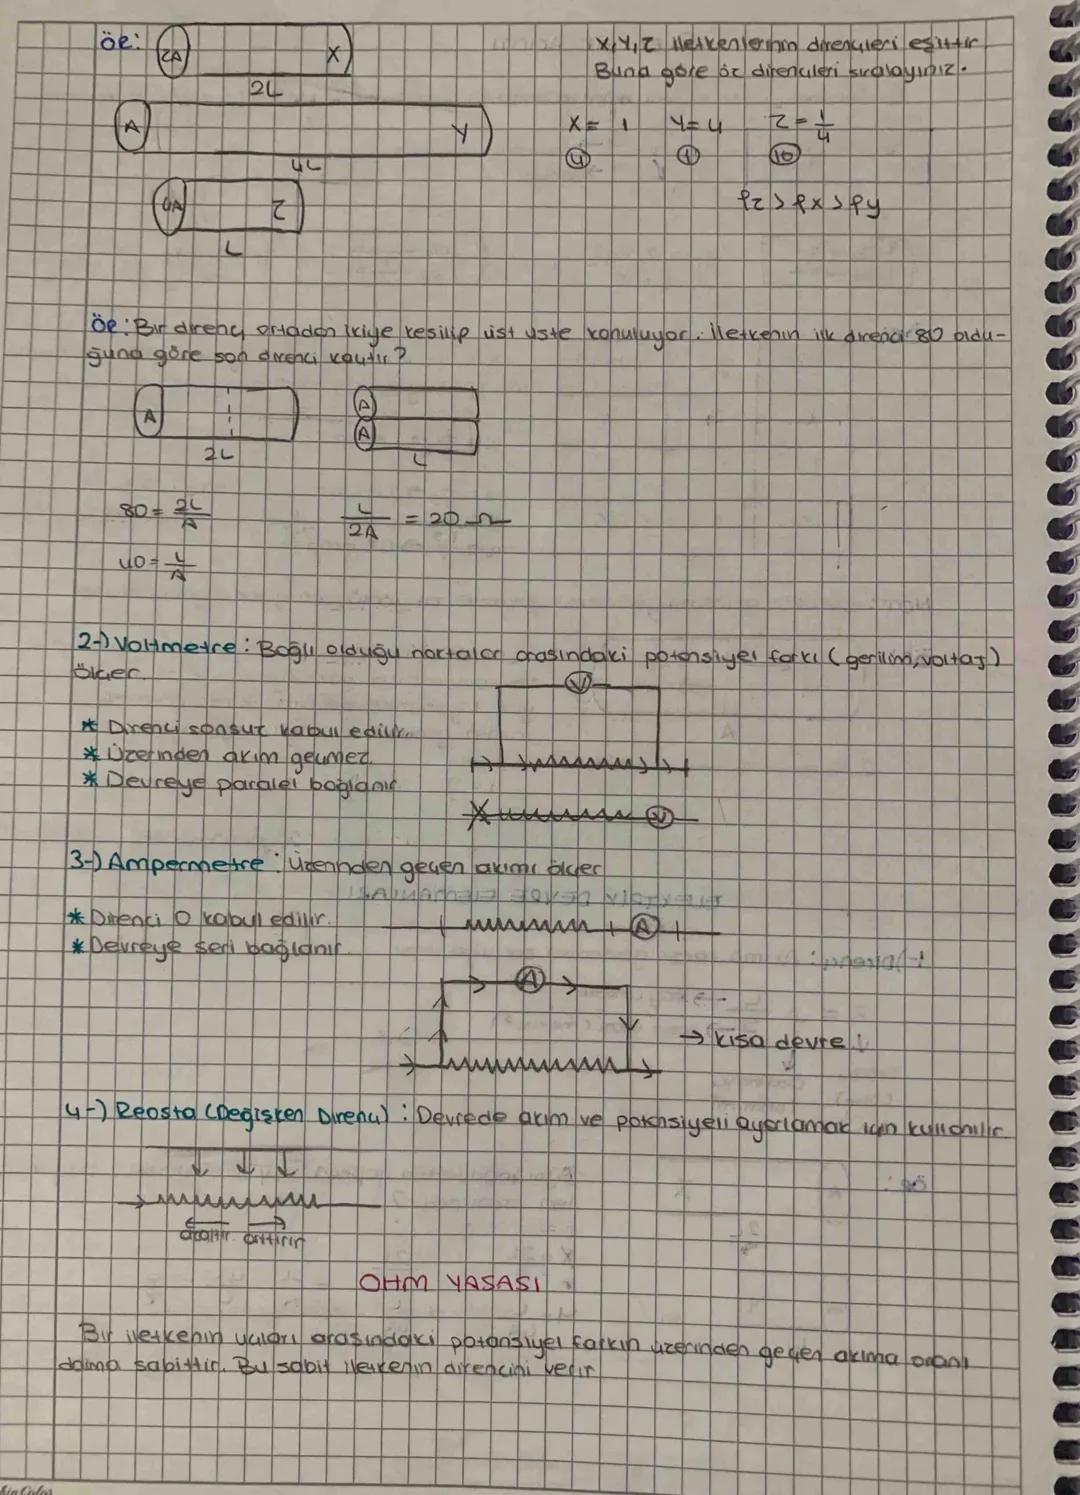 ör:
2A
X
X,Y,Z iletkenlerinin dirençleri eşittir.
Buna göre öz dirençleri sıralayınız.
2L
A
Y
X= 1 Y=4 Z= 1/4
4 1 16
4L
4A
Z
ρz > ρx > ρy
L
ör: Bir direnç ortadan ikiye kesilip üst üste konuluyor. İletkenin ilk direnci 80 oldu-
ğuna göre son direnci kaçtır?
A
A
A
2L
L
80= 2L/A
L/2A = 20 Ω
40= L/A
2-) Voltmetre: Bağlı olduğu noktalar arasındaki potansiyel farkı (gerilim, voltaj)
ölçer.
V
* Direnci sonsuz kabul edilir.
* Üzerinden akım geçmez.
* Devreye paralel bağlanır
V
3-) Ampermetre: üzerinden geçen akımı ölçer
* Direnci 0 kabul edilir.
A
* Devreye seri bağlanır.
A
→ kısa devre
4-) Reosta (Değişken Direnç) : Devrede akım ve potansiyeli ayarlamak için kullanılır.
azaltır arttırır
OHM YASASI
Bir iletkenin uçları arasındaki potansiyel farkın üzerinden geçen akıma oranı
daima sabittir. Bu sabit iletkenin direncini verir